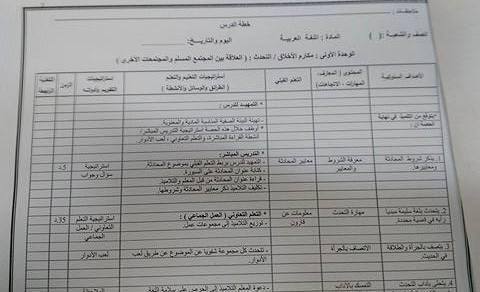 ملاحظات :
خطة الدرس
الصف والشعبة : ( ) المادة : اللغة العربية اليوم والتاريخ:
الوحدة الأولى : مكارم الأخلاق / التحدث : ( العلاقة بين المجتمع المسلم والمجتمعات الأخرى )
الأهداف السلوكية
المحتوى ( المعارف، المهارات ، الاتجاهات)
التعلم القبلي
استراتيجيات التعليم والتعلم
( الطرائق والوسائل والأنشطة )
استراتيجيات التقويم وأدواته
الزمن
التغذية الراجعة
يتوقع من التلميذ في نهاية الحصة أن :
* التمهيد للدرس :
- تهيئة البيئة الصفية المناسبة المادية والمعنوية.
- أوظف خلال هذه الحصة استراتيجية التدريس المباشر/
أنشطة القراءة المباشرة، والتعلم التعاوني ، لعب الأدوار.
1. يذكر شروط المحادثة ومعاييرها.
معرفة الشروط والمعايير
معايير المحادثة
* التدريس المباشر:
- التمهيد للدرس بربط التعلم القبلي بموضوع المحادثة
- كتابة عنوان المحادثة على السبورة.
- قراءة عنوان المحادثة من قبل المعلم والتلاميذ
- تكليف التلاميذ ذكر معايير المحادثة وشروطها.
استراتيجية سؤال وجواب
5د
2. يتحدث بلغة سليمة مبديا رأيه في قضية محددة.
مهارة التحدث
معلومات عن قارون
* التعلم التعاوني ( العمل الجماعي ) :
- توزيع التلاميذ إلى مجموعات عمل.
استراتيجية التعلم التعاوني / العمل الجماعي
35د
3. يتصف بالجرأة والطلاقة في الحديث.
الاتصاف بالجرأة
- تتحدث كل مجموعة شفويا عن الموضوع عن طريق لعب الأدوار.
لعب الأدوار
4. يتحلى بآداب التحدث
التمسك بالآداب
- دعوة التلاميذ إلى الحرص على
الملاحظة